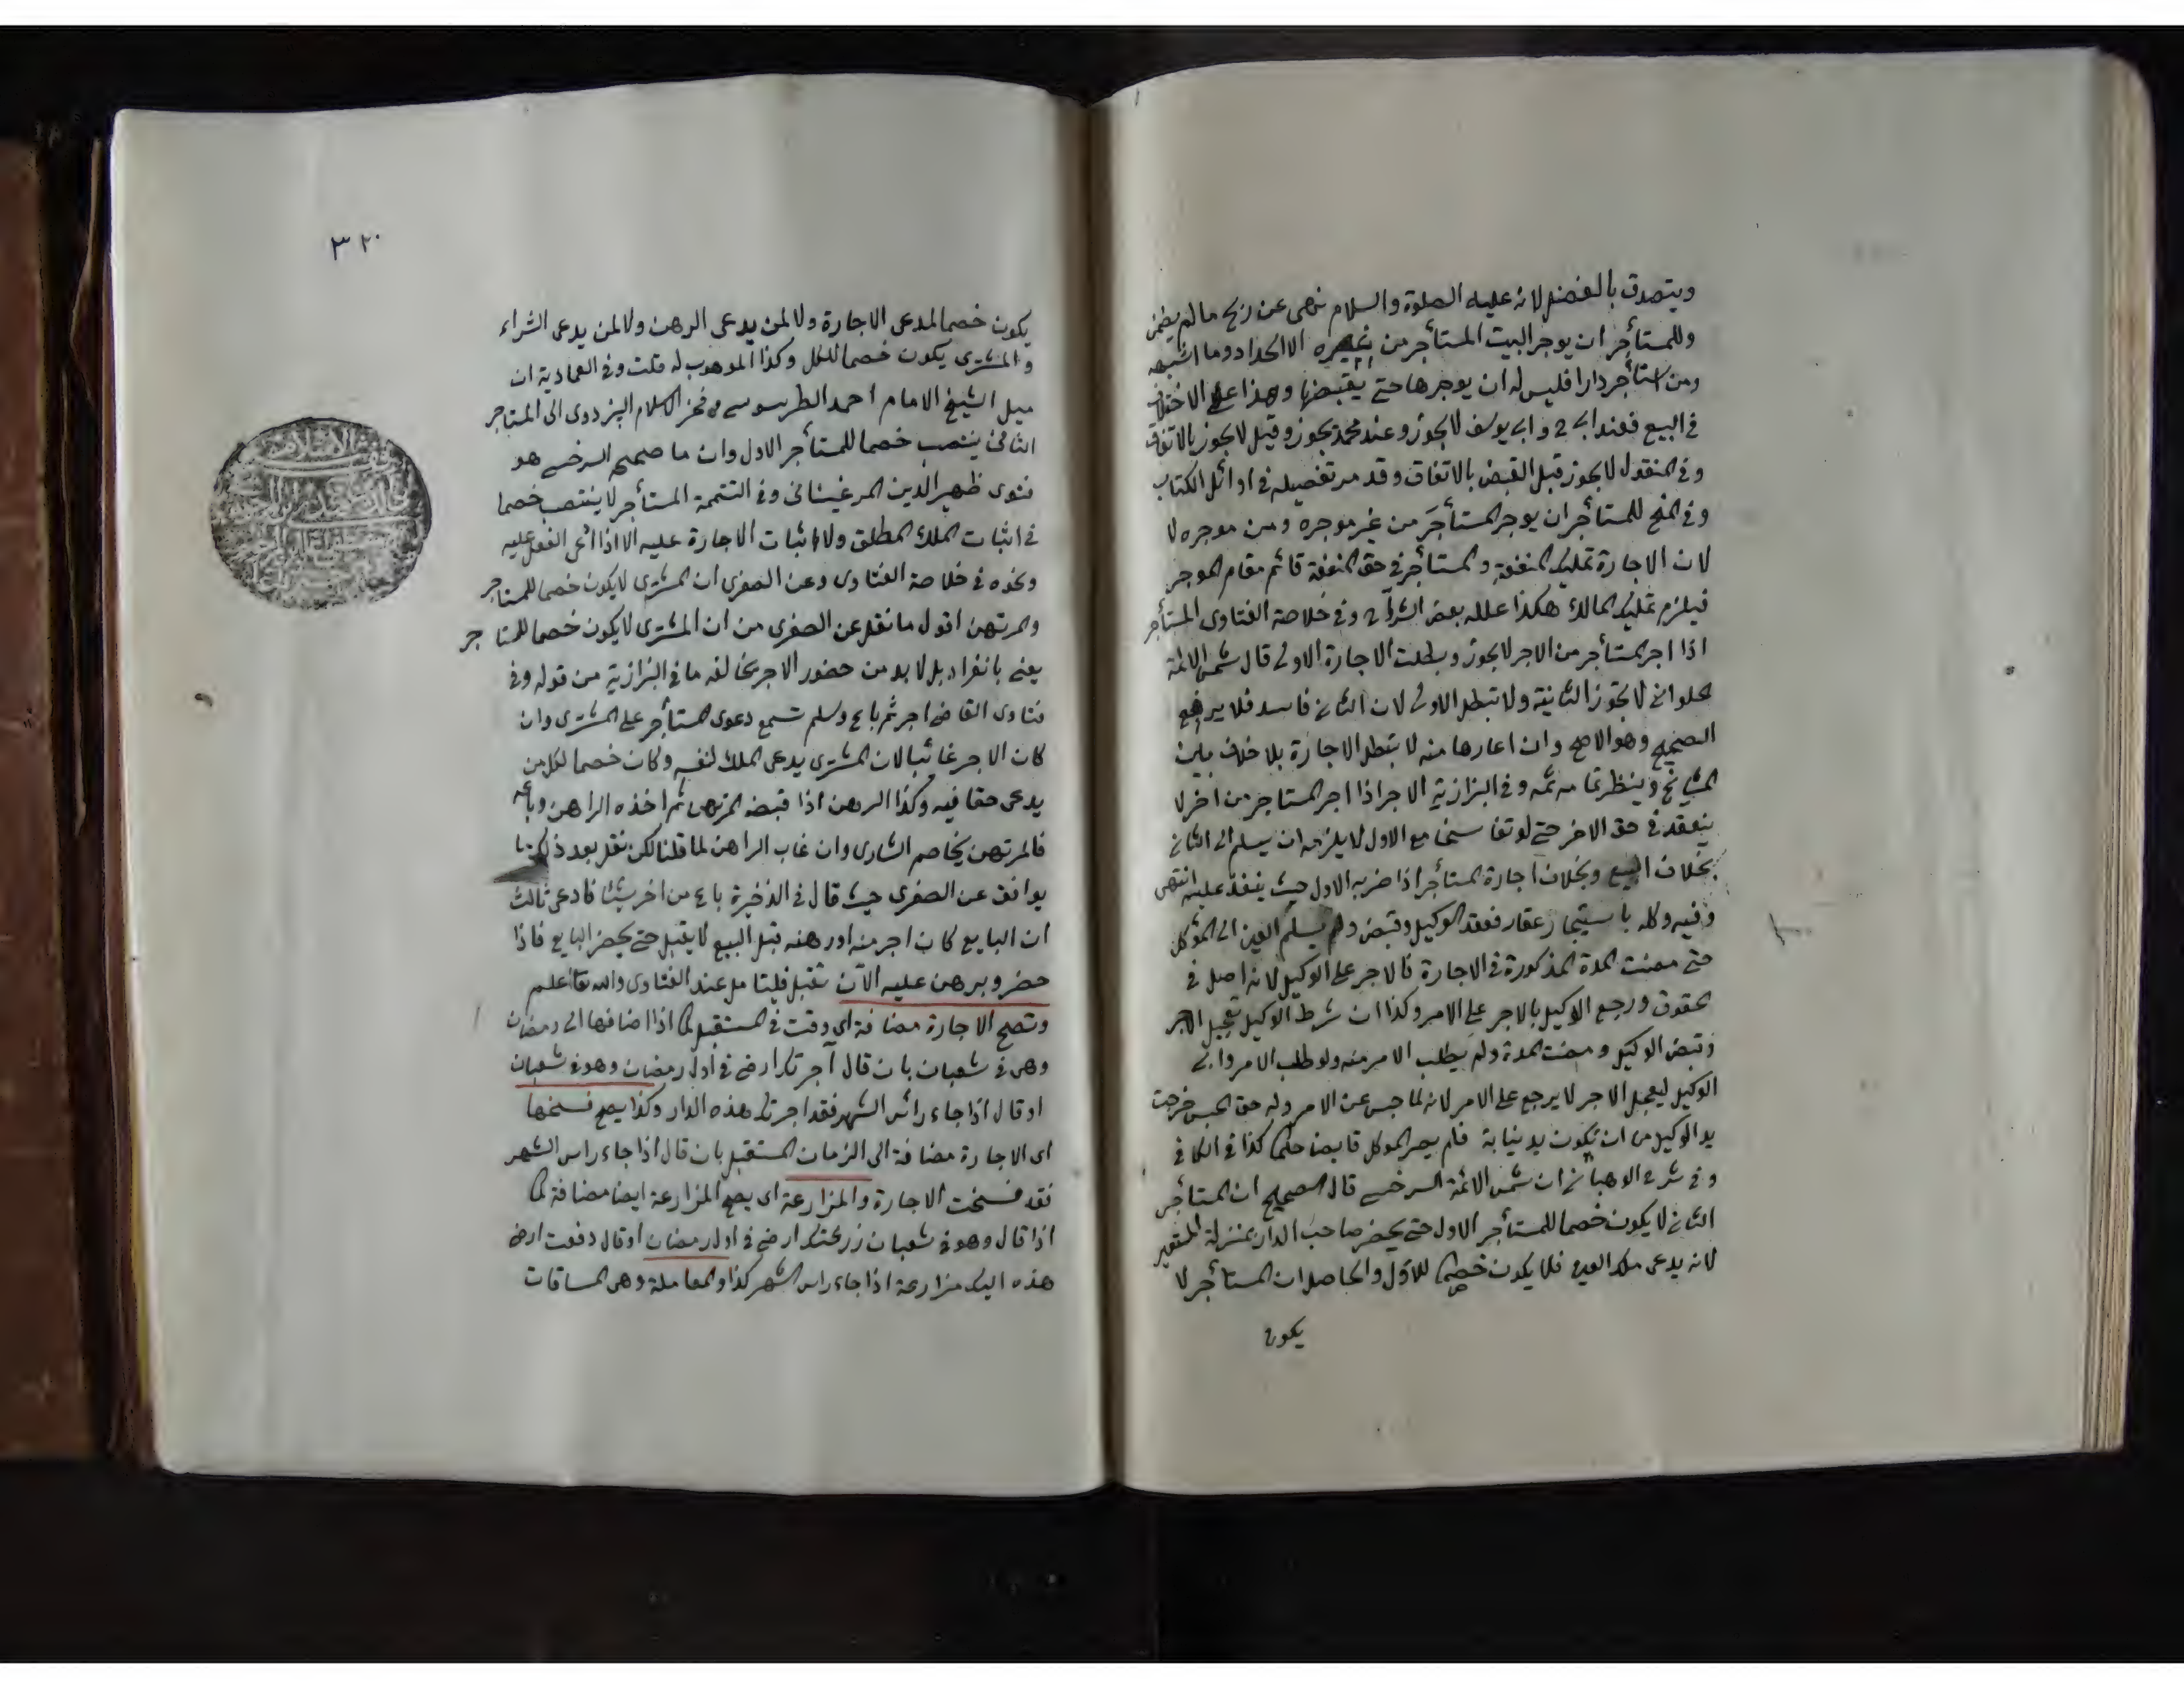 ويتصدق بالفضل لانه عليه الصلوة والسلام نهى عن ربح ما لم يضمن
وللمستأجر ان يوجر البيت المستأجر من غيره الا الحداد وما اشبهه
ومن استأجر دارا فليس له ان يوجرها حتى يقبضها وهذا على الاختلاف
في البيع فعند ابي ح وابي يوسف لا يجوز وعند محمد يجوز وقيل لا يجوز بالاتفاق
وفي المنقول لا يجوز قبل القبض بالاتفاق وقد مر تفصيله في اوائل الكتاب
وفي المنح للمستأجر ان يوجر المستأجَر من غير موجره ومن موجره لا
لان الاجارة تمليك المنفعة والمستأجر في حق المنفعة قائم مقام الموجر
فيلزم تمليك المالك هكذا علله بعض الشراح وفي خلاصة الفتاوى المستأجر
اذا اجر المستأجر من الاجر لا يجوز وبطلت الاجارة الاولى قال شمس الائمة
الحلواني لا تجوز الثانية ولا تبطل الاولى لان الثاني فاسد فلا يرفع
الصحيح وهو الاصح وان اعارها منه لا تبطل الاجارة بلا خلاف بين
المشايخ وينظر تمامه ثمه وفي البزازية الاجر اذا اجر المستاجر من اخر لا
ينعقد في حق الاخر حتى لو تفاسخا مع الاول لا يلزمه ان يسلم الى الثاني
بخلاف البيع وبخلاف اجارة المستأجر اذا ضربه الاول حيث ينفذ عليه انتهى
وفيه وكله باستيجار عقار فعقد الوكيل وقبض ولم يسلم العين الى الموكل
حتى مضت المدة المذكورة في الاجارة فالاجر على الوكيل لانه اصل في
الحقوق ورجع الوكيل بالاجر على الامر وكذا ان شرط الوكيل تعجيل الاجر
وقبض الوكيل ومضت المدة ولم يطلب الامر منه ولو طلب الامر وابى
الوكيل ليعجل الاجر لا يرجع على الامر لانه لما حبس عن الامر وله حق الحبس خرجت
يد الوكيل من ان تكون يد نيابة فلم يصر الموكل قابضا حكما كذا في الكافي
وفي شرح الوهباني ان شمس الائمة السرخسي قال الصحيح ان المستأجر
الثاني لا يكون خصما للمستأجر الاول حتى يحضر صاحب الدار بمنزلة المستعير
لانه يدعى ملك العين فلا يكون خصما للاول والحاصل ان المستأجر لا
يكون
٣٢٠
يكون خصما لمدعى الاجارة ولا لمن يدعى الرهن ولا لمن يدعى الشراء
والمشترى يكون خصما للكل وكذا الموهوب له قلت وفي العمادية ان
ميل الشيخ الامام احمد الطرسوسي وفخر الاسلام البزدوى الى المستاجر
الثاني ينتصب خصما للمستأجر الاول وان ما صححه السرخسي هو
فتوى ظهير الدين المرغيناني وفي التتمة المستأجر لا ينتصب خصما
في اثبات الملك المطلق ولا اثبات الاجارة عليه الا اذا ادعى الفعل عليه
ونحوه في خلاصة الفتاوى وعن الصغرى ان المشترى لا يكون خصما للمستاجر
والمرتهن اقول ما نقل عن الصغرى من ان المشترى لا يكون خصما للمستا جر
يعني بانفراد بل لا بد من حضور الاجر يخالفه ما في البزازية من قوله وفي
فتاوى القاضي اجر ثم باع وسلم تسمع دعوى المستأجر على المشترى وان
كان الاجر غائبا لان المشترى يدعى الملك لنفسه وكان خصما لكل من
يدعى حقا فيه وكذا الرهن اذا قبضه المرتهن ثم اخذه الراهن وباعه
فالمرتهن يخاصم الشارى وان غاب الراهن لما قلنا لكن نقل بعد ذلك ما
يوافق عن الصغرى حيث قال في الذخيرة باع من اخر شيئا فادعى ثالث
ان البايع كان اجر منه او رهنه قبل البيع لا يقبل حتى يحضر البايع فاذا
حضر وبرهن عليه الآن تقبل فليتامل عند الفتاوى والله تعا اعلم
وتصح الاجارة مضافة اى وقت في المستقبل كما اذا اضافها الى رمضان
وهى في شعبان بان قال آجرتك ارضى في اول رمضان وهو في شعبان
او قال اذا جاء رائس الشهر فقد اجرتك هذه الدار وكذا يصح فسخها
اى الاجارة مضافة الى الزمان المستقبل بان قال اذا جاء راس الشهر
فقد فسخت الاجارة والمزارعة اى يصح المزارعة ايضا مضافة كما
اذا قال وهو في شعبان زرعتك ارضى في اول رمضان او قال دفعت ارضى
هذه اليك مزارعة اذا جاء راس الشهر كذا والمعاملة وهى المساقات